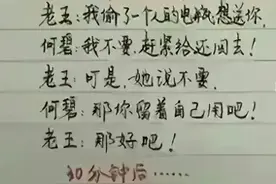 老王：我偷了一个人的电瓶,想送你,
何碧：我不要.赶紧给还回去！
老王：可是,她说不要.
何碧：那你留着自己用吧！
老王：那好吧！
30分钟后……